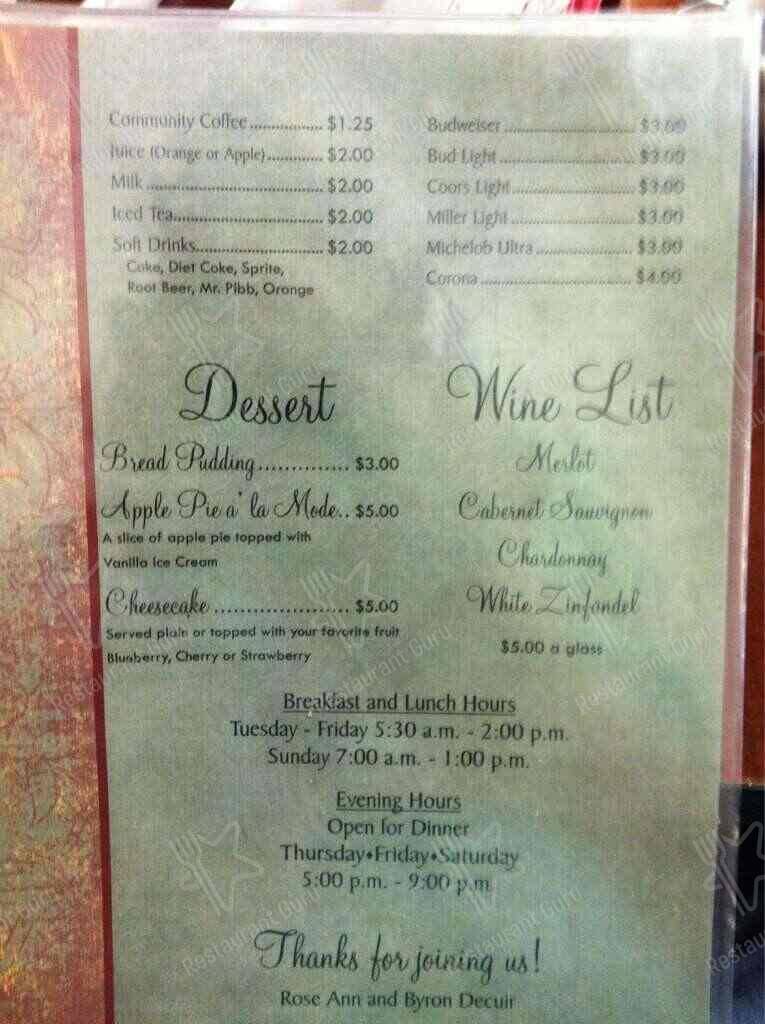 Community Coffee................. $1.25
Juice (Orange or Apple)............. $2.00
Milk......................................... $2.00
Iced Tea.................................. $2.00
Soft Drinks............................. $2.00
Coke, Diet Coke, Sprite,
Root Beer, Mr. Pibb, Orange
Budweiser.............................. $3.00
Bud Light............................... $3.00
Coors Light............................ $3.00
Miller Light............................ $3.00
Michelob Ultra...................... $3.00
Corona................................... $4.00
Dessert
Bread Pudding.............. $3.00
Apple Pie a' la Mode.. $5.00
A slice of apple pie topped with
Vanilla Ice Cream
Cheesecake..................... $5.00
Served plain or topped with your favorite fruit
Blueberry, Cherry or Strawberry
Wine List
Merlot
Cabernet Sauvignon
Chardonnay
White Zinfandel
$5.00 a glass
Breakfast and Lunch Hours
Tuesday - Friday 5:30 a.m. - 2:00 p.m.
Sunday 7:00 a.m. - 1:00 p.m.
Evening Hours
Open for Dinner
Thursday•Friday•Saturday
5:00 p.m. - 9:00 p.m.
Thanks for joining us!
Rose Ann and Byron Decuir
Restaurant Guru